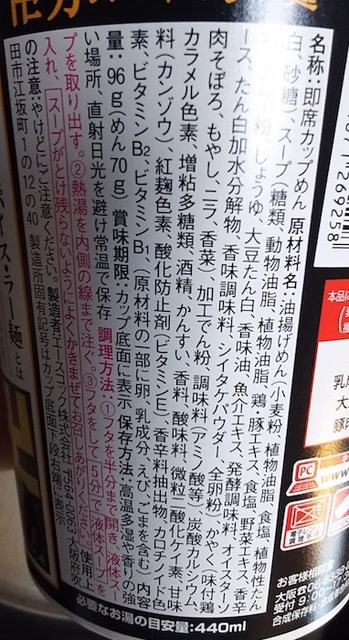 名称:即席カップめん 原材料名:油揚げめん(小麦粉、植物油脂、食塩、植物性たん
白、砂糖)、スープ(糖類、動物油脂、植物油脂、鶏・豚エキス、食塩、野菜エキス、香辛
しょうゆ、大豆たん白、香味油、魚介エキス、発酵調味料、オイスターソ
ース、たん白加水分解物、香味調味料、シイタケパウダー、全卵粉)、かやく(味付鶏
肉そぼろ、もやし、ニラ、香菜)加工でん粉、調味料(アミノ酸等)、炭酸カルシウム、
カラメル色素、増粘多糖類、酒精、かんすい、香料、酸味料、微粒二酸化ケイ素、甘味
料(カンゾウ)、紅麹色素、酸化防止剤(ビタミンE)、香辛料抽出物、カロチノイド色
素、ビタミンB2、ビタミンB1、(原材料の一部に卵、乳成分、えび、ごまを含む) 内容
量:96g(めん70g) 賞味期限:カップ底面に表示 保存方法:高温多湿や香りの強
い場所、直射日光を避け常温で保存 調理方法:①フタを半分まで開き、液体スー
プを取り出す。②熱湯を内側の線まで注ぐ。③フタをして5分で液体スープを
入れ、スープがとけ残らないようによくかきまぜてお召しあがりください。 使用上
の注意:やけどにご注意ください。 製造者:エースコック株式会社
田市江坂町1の12の40 製造所固有記号はカップ底面下段右側に表示
必要なお湯の目安量:440ml
269258
本品に
乳成
大
豚肉
PC
www
お客様相談室
大阪☎06-6338
受付 9:00
合成保存料
ラー麺とは